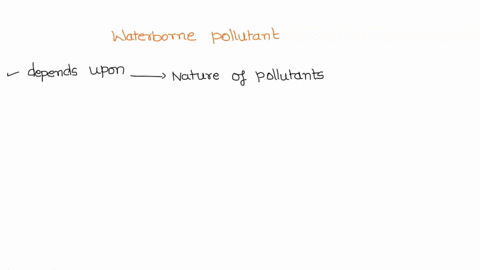 Waterborne pollutant
✓ depends upon ⟶ Nature of pollutants